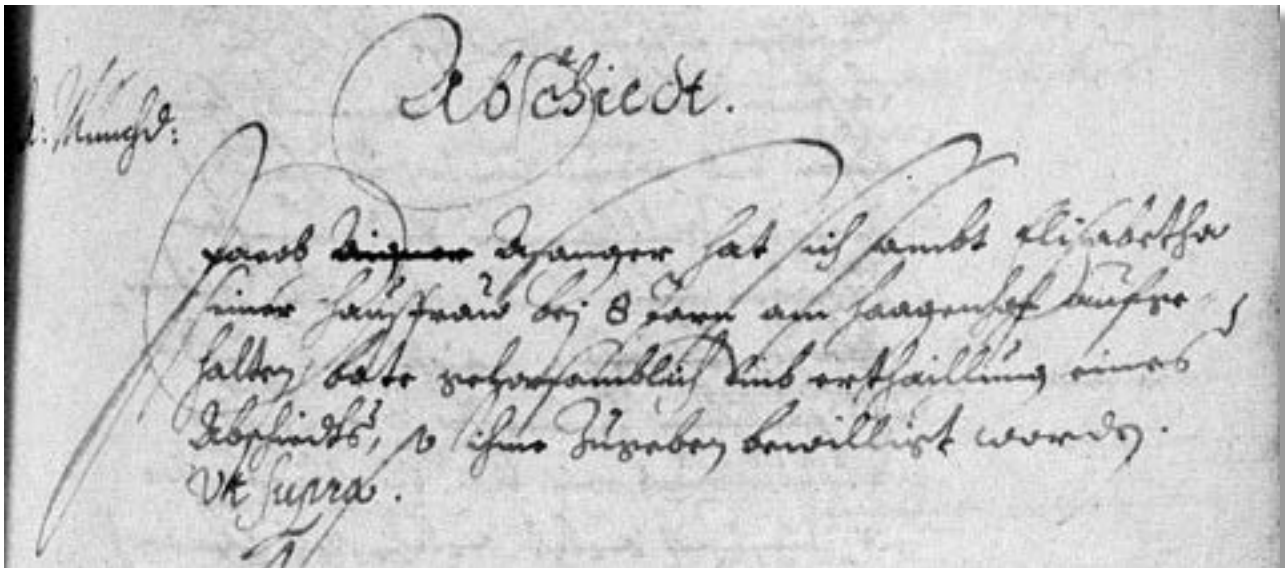 Abschiedt.
Jacob Aigner Asanger hat sich sambt Elisabetha
seiner Haußfrau bej 8 Jarn am Haagenhof aufge-
halten, bate gehorsamblich umb erthaillung eines
Abschiedts, so ihme zugeben bewilligt worden.
Vt supra.